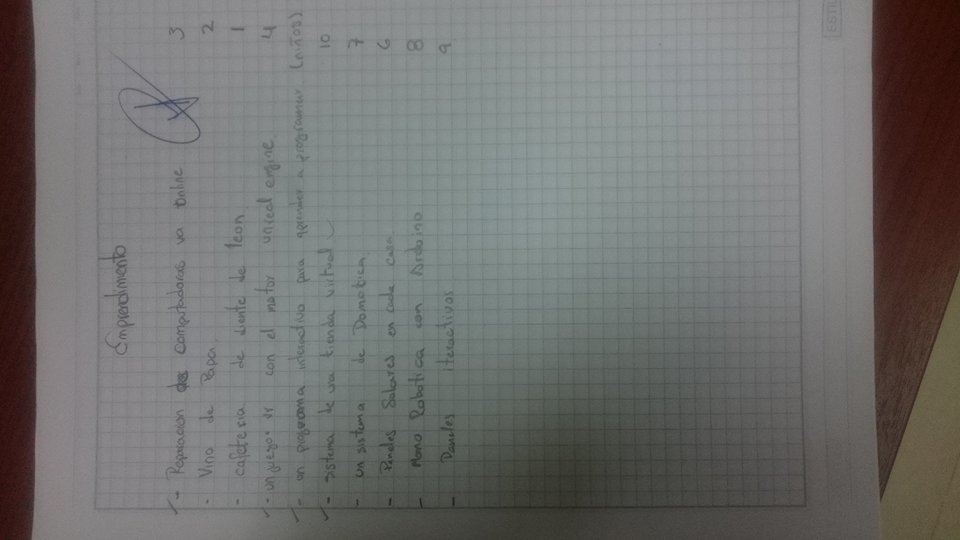 Emprendimiento
✓ - Reparacion de computadoras va online 3
- Vino de Papa 2
- cafeteria de diente de leon 1
✓ - un juego con el motor unreal engine. 4
✓ - un programa interactivo para aprender a programar (niños)
✓ - sistema de una tienda virtual 10
- un sistema de Domotica. 7
- Paneles Solares en cada casa. 6
- Mano Robotica con Arduino 8
- Paneles iteractivos 9